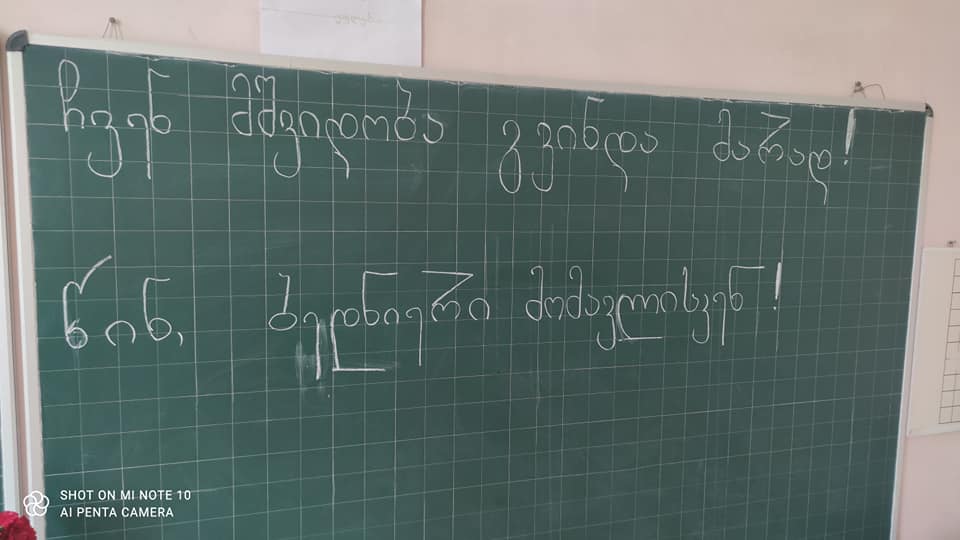 ჩვენ მშვიდობა გვინდა მარად!
წინ, ბედნიერი მომავლისკენ!
SHOT ON MI NOTE 10
AI PENTA CAMERA